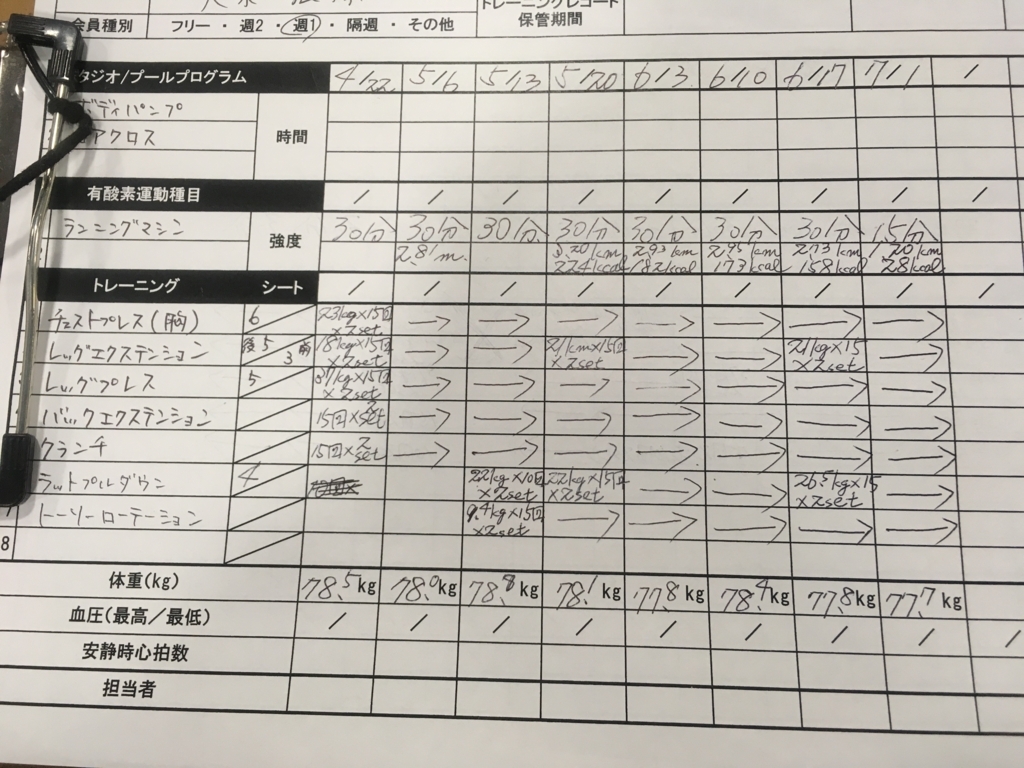 トレーニングレコード
保管期間
会員種別 フリー・週2・週1・隔週・その他
タジオ/プールプログラム 4/22 5/6 5/13 5/20 6/3 6/10 6/17 7/1 /
ボディパンプ
時間
アクロス
有酸素運動種目 / / / / / / / / /
ランニングマシン 強度 30分 30分 30分 30分 30分 30分 30分 15分
2.81m. 3.20km 2.93km 2.95km 2.73km 1.20km
224kcal 182kcal 173kcal 158kcal 78kcal
トレーニング シート / / / / / / / / /
チェストプレス(胸) 6 23kg×15回×2set → → → → → → →
レッグエクステンション 後5 3前 18kg×15回×2set → → 21km×15回×2set → → 21kg×15×2set →
レッグプレス 5 37kg×15回×2set → → → → → → →
バックエクステンション 15回×2set → → → → → → →
クランチ 15回×2set → → → → → → →
ラットプルダウン 4 22kg×10回×2set 22kg×15回×2set → → 26.5kg×15×2set →
トーソーローテーション 9.4kg×15回×2set → → → → →
8
体重(kg) 78.5kg 78.0kg 78.8kg 78.1kg 77.8kg 78.4kg 77.8kg 77.7kg
血圧(最高/最低) / / / / / / / / /
安静時心拍数
担当者